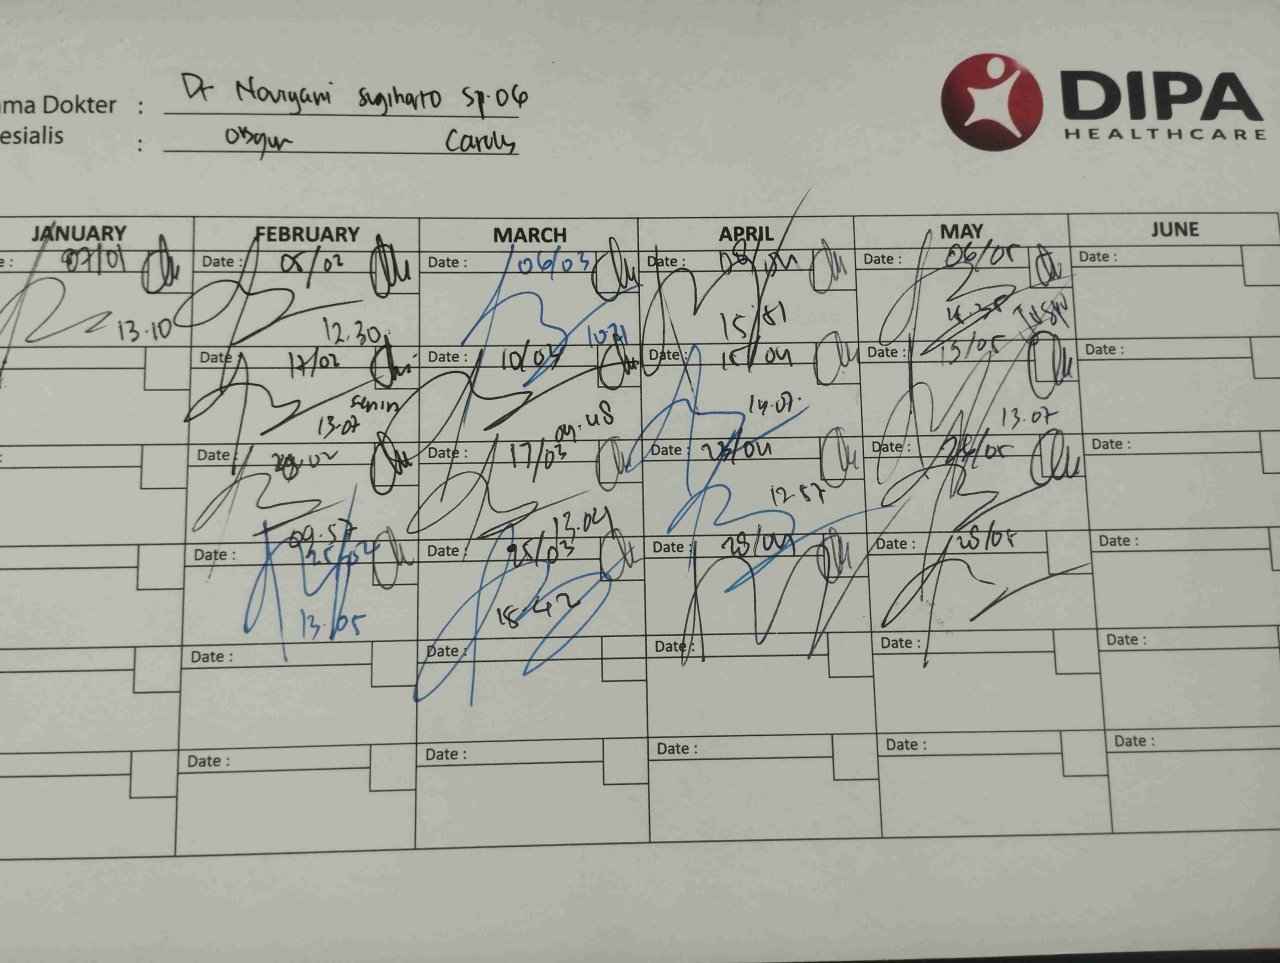 DIPA
HEALTHCARE
ama Dokter : Dr Novryani Sugiharto Sp.OG
esialis : Obgyn Carolus
JANUARY FEBRUARY MARCH APRIL MAY JUNE
e : 07/01 Date : 05/02 Date : 06/03 Date : 08/04 Date : 06/05 Date :
13.10 12.30 10.31 15/81
Date : 17/02 Date : 10/03 Date : 15/04 Date : 13/05 Date :
Senin
13.07 09.48 14.07. 13.07
Date : 02 Date : 17/03 Date : 23/04 Date : /05 Date :
09.57 13.04 12.57
Date : 25/02 Date : 25/03 Date : 28/04 Date : 28/05 Date :
13.05 18.42
Date : Date : Date : Date : Date :
Date : Date : Date : Date : Date :